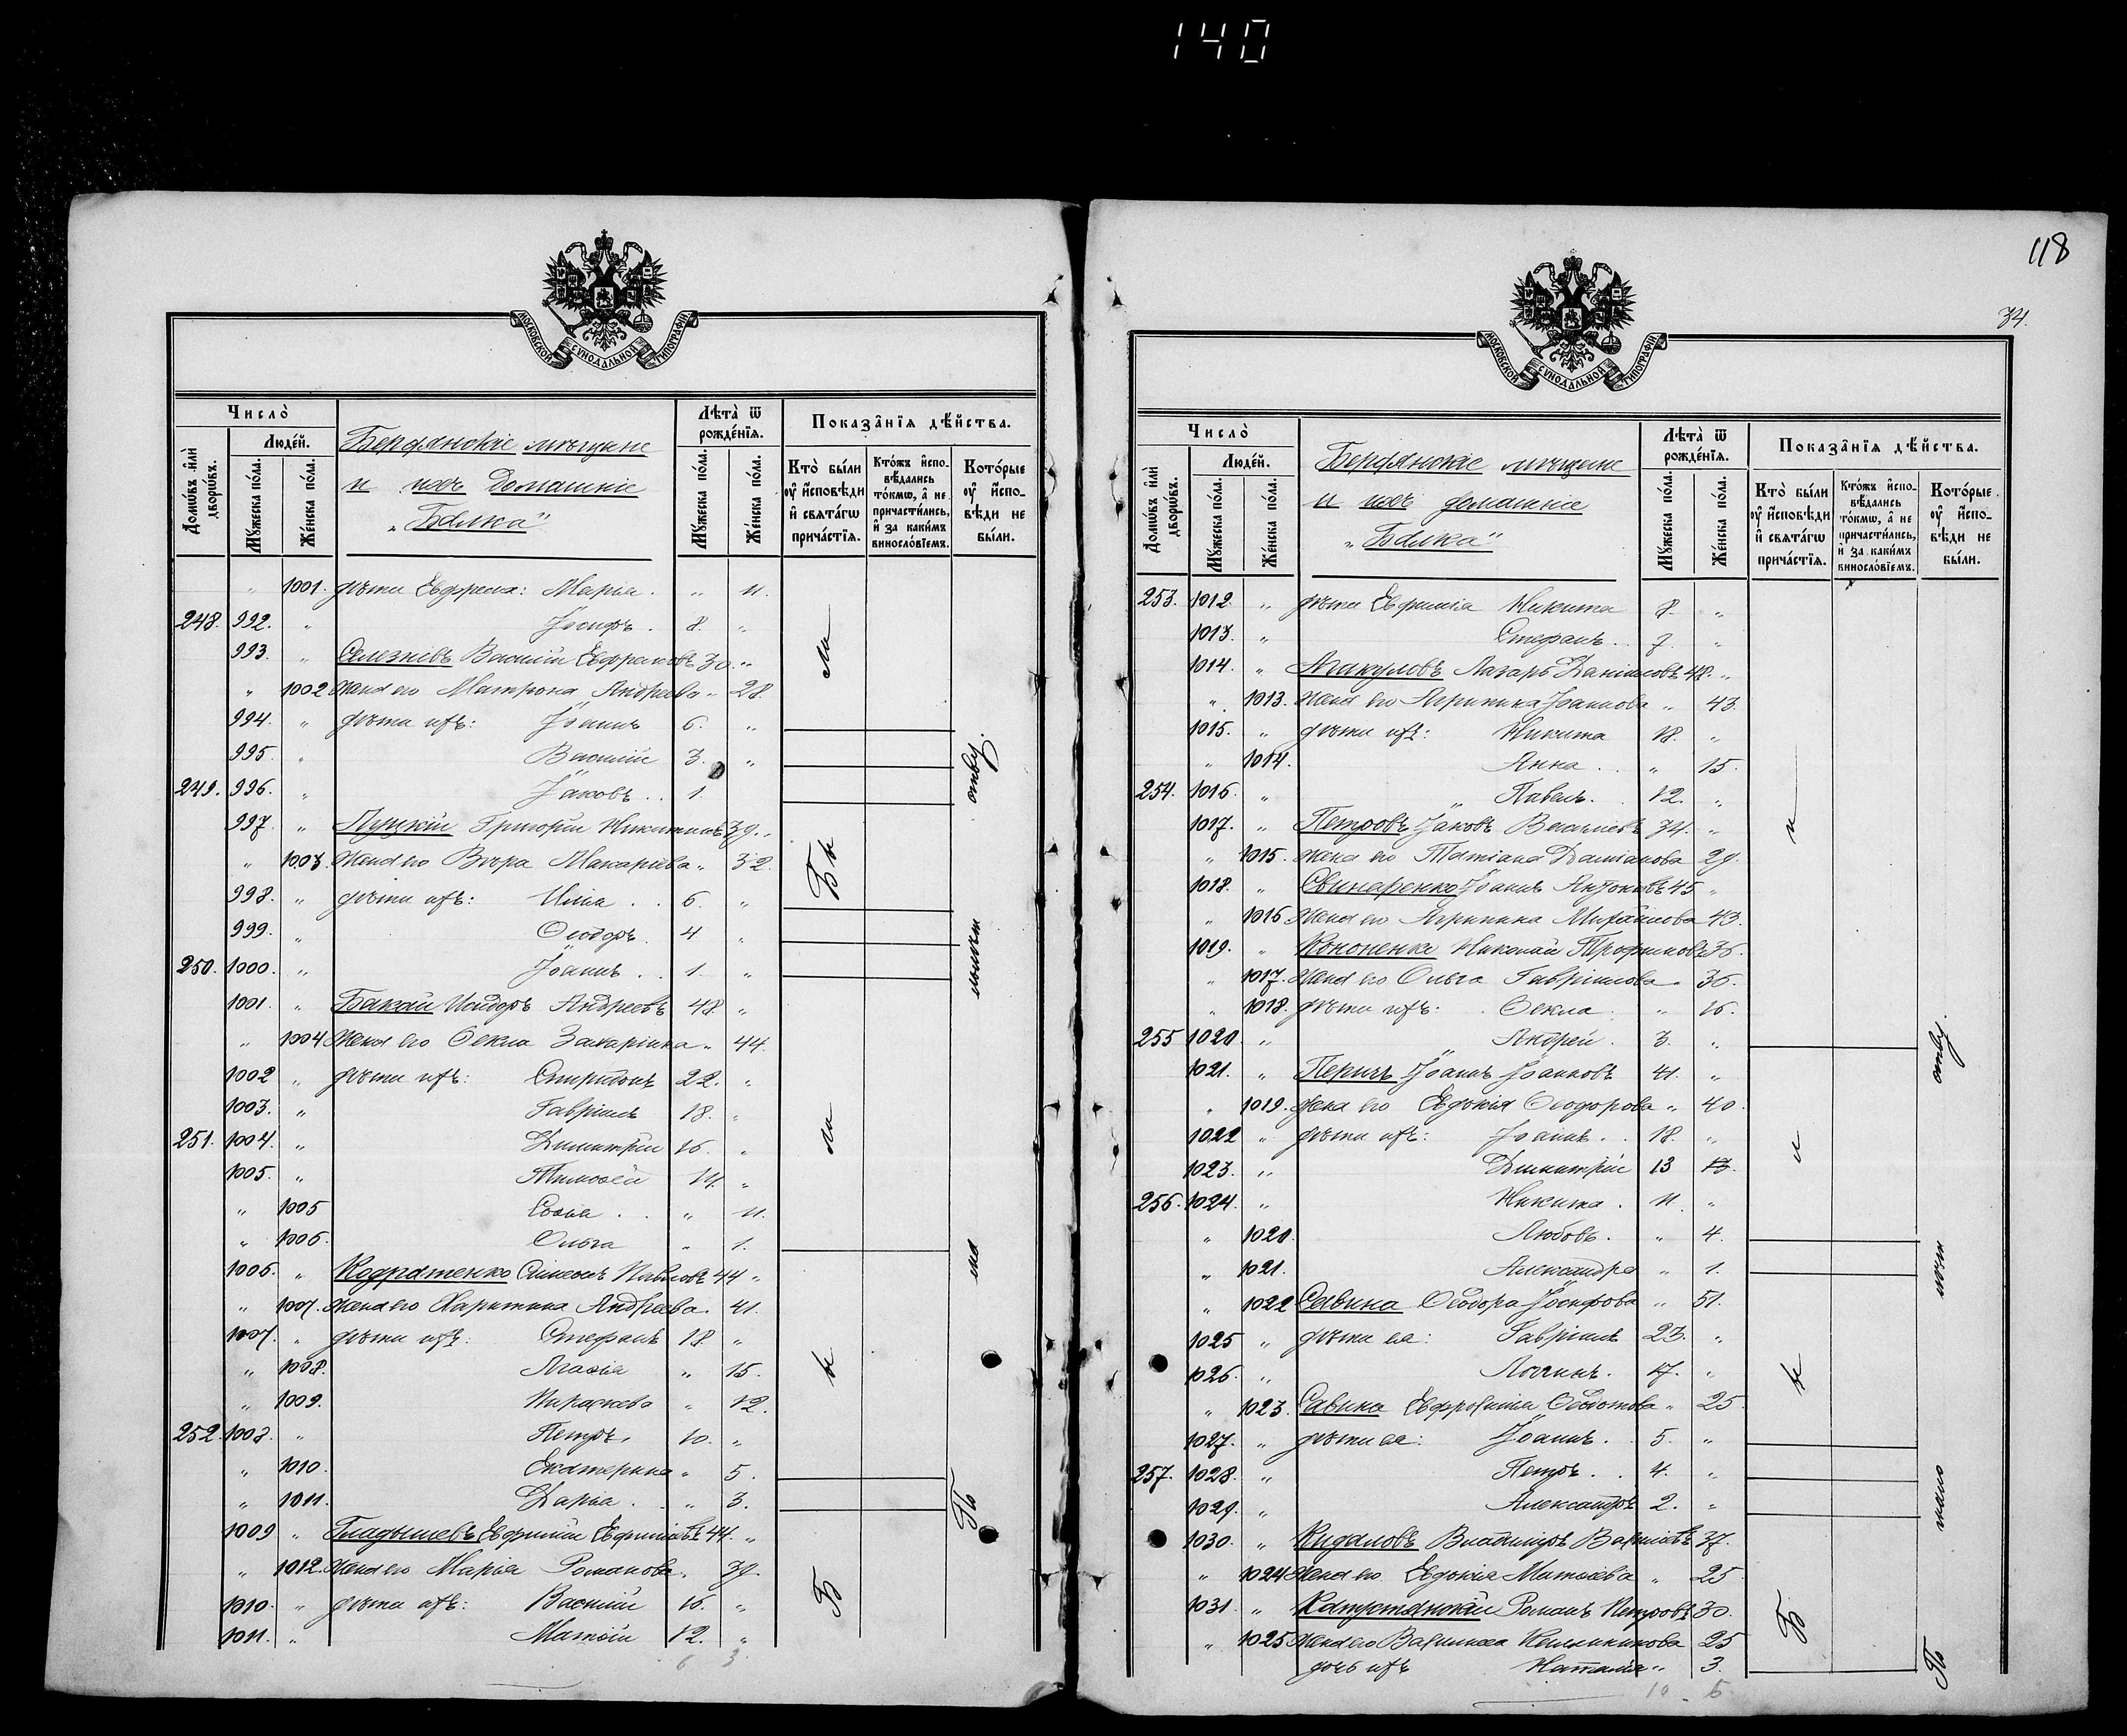 140
118
34.
МОСКОВСКОЙ СѴНОДАЛЬНОЙ ТИПОГРАФІИ
Число̀
Домѡ́въ и҆лѝ дворѡ́въ.
Люде́й.
Мꙋ́жеска по́ла.
Же́нска по́ла.
Бердянскіе мѣщане
и ихъ домашніе
„Балка"
Лѣ́та ѿ рожде́нїѧ.
Мꙋ́жеска по́ла.
Же́нска по́ла.
Показа̑нїѧ дѣ́йства.
Кто̀ бы́ли оу҆ и҆сповѣ́ди и҆ свѧта́гѡ прича́стїѧ.
Кто́жъ и҆сповѣ́дались то́кмѡ, а҆ не причасти́лись, и҆ за каки́мъ винословїемъ.
Кото́рые оу҆ и҆споѣ́ди не бы́ли.
„ 1001. дѣти Ефрема: Марія . „ 11.
248. 992. „ Іосифъ . 8. „
993. „ Селезневъ Василій Ефремовъ 30. „
„ 1002 Жена его Матрона Андреева „ 28.
994. „ дѣти ихъ: Іоаннъ 6. „
995. „ Василій 3. „
249. 996. „ Іаковъ . . 1.
997. „ Луцкій Григорій Никитинъ 39. „
„ 1003 Жена его Вѣра Макаріева „ 32.
998. „ дѣти ихъ: Илія . . 6. „
999. „ Ѳеодоръ. 4 „
250. 1000. „ Іоаннъ . . 1. „
1001. „ Бакай Исидоръ Андреевъ 48. „
„ 1004 Жена его Ѳекла Захаріина „ 44.
1002 „ дѣти ихъ: Спиридонъ 22. „
1003. „ Гавріилъ 18. „
251. 1004. „ Димитрій 16. „
1005. „ Тимоѳей 14. „
„ 1005 Софія . . „ 11.
„ 1006. Ольга „ 1.
1006. „ Кодратенко Симеонъ Павловъ 44 „
„ 1007. Жена его Харитина Андреева. 41.
1007. „ дѣти ихъ: Стефанъ 18. „
„ 1008. Агафія „ 15.
„ 1009. Параскева „ 12.
252. 1008. „ Петръ. 10. „
„ 1010. Екатерина „ 5.
„ 1011. Дарія . . „ 3.
1009 „ Гладышевъ Ефимій Ефиміевъ 44. „
„ 1012. Жена его Марія Романова. 39.
1010. „ дѣти ихъ: Василій 16. „
1011. „ Матѳій 12. „
6 3
Бы ли
Б ы ли
По малолѣтству.
МОСКОВСКОЙ СѴНОДАЛЬНОЙ ТИПОГРАФІИ
Число̀
Домѡ́въ и҆лѝ дворѡ́въ.
Люде́й.
Мꙋ́жеска по́ла.
Же́нска по́ла.
Бердянскіе мѣщане
и ихъ домашніе
„Балка"
Лѣ́та ѿ рожде́нїѧ.
Мꙋ́жеска по́ла.
Же́нска по́ла.
Показа̑нїѧ дѣ́йства.
Кто̀ бы́ли оу҆ и҆сповѣ́ди и҆ свѧта́гѡ прича́стїѧ.
Кто́жъ и҆сповѣ́дались то́кмѡ, а҆ не причасти́лись, и҆ за каки́мъ винословїемъ.
Кото́рые оу҆ и҆сповѣ́ди не бы́ли.
253. 1012. „ дѣти Ефимія Никита 8. „
1013. „ Стефанъ. 7. „
1014. „ Макуловъ Лазарь Даніиловъ 48. „
„ 1013. Жена его Агрипина Іоаннова „ 43.
1015. „ дѣти ихъ: Никита 18. „
„ 1014. Анна . . „ 15.
254. 1016. „ Павелъ. 12. „
1017. „ Петровъ Іаковъ Василіевъ 34. „
„ 1015. Жена его Татіана Даміанова 29.
1018. „ Свинаренко Іоаннъ Антоновъ 45 „
„ 1016 Жена его Агрипина Михайлова 43.
1019. „ Кононенко Николай Трофимовъ 36.
„ 1017. Жена его Ольга Гавріилова. 36.
„ 1018. дѣти ихъ: Ѳекла. „ 16.
255 1020. „ Андрей . 3. „
1021. „ Перичъ Іоаннъ Іоанновъ 41. „
„ 1019. Жена его Евдокія Ѳеодорова „ 40.
1022 „ дѣти ихъ: Іоаннъ. . 18. „
1023. „ Димитрій 13 13.
256. 1024. „ Никита . 11 „
„ 1020. Любовь. „ 4.
„ 1021. Александра „ 1.
„ 1022 Савина Ѳеодора Іосифова „ 51.
1025 „ дѣти ея: Гавріилъ 23. „
1026. „ Логгинъ. 17. „
„ 1023. Савина Евфросинія Ѳедотова „ 25
1027. „ дѣти ея: Іоаннъ. 5. „
257. 1028. „ Петръ. . 4. „
1029. „ Александръ 2. „
1030. „ Кидаловъ Владиміръ 37.
„ 1024 Жена его Евдокія Матѳіева „ 25
1031. „ Романъ Петровъ 30.
„ 1025 Жена его 25
дочь ихъ Наталія „ 3.
10 - 5
Б ы л и
По малолѣтству.